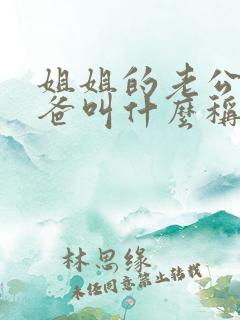 姐姐的老公
爸叫什麼稱
林思缘
未经同意禁止转载